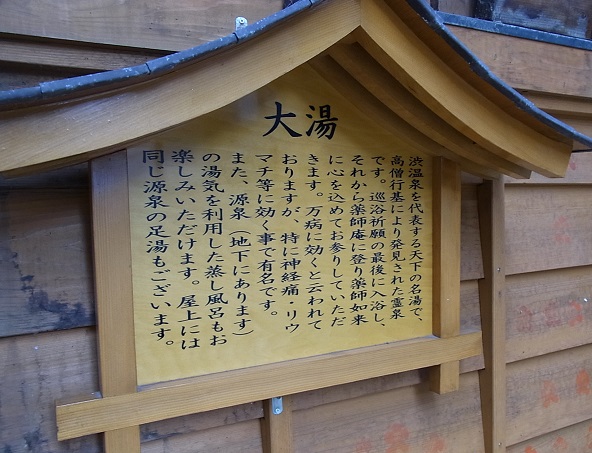 大湯
渋温泉を代表する天下の名湯で、
高僧行基により発見された霊泉
です。巡浴祈願の最後に入浴し、
それから薬師庵に登り薬師如来
に心を込めてお参りしていただ
きます。万病に効くと云われて
おりますが、特に神経痛・リウ
マチ等に効く事で有名です。
また、源泉（地下にあります）
の湯気を利用した蒸し風呂もお
楽しみいただけます。屋上には
同じ源泉の足湯もございます。